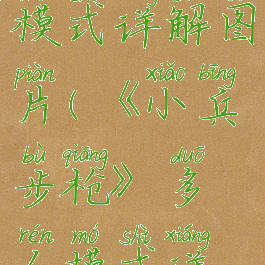 模式详解图
piàn xiǎo bīng
片(《小兵
bù qiāng duō
步枪》 多
rén mó shì xiáng